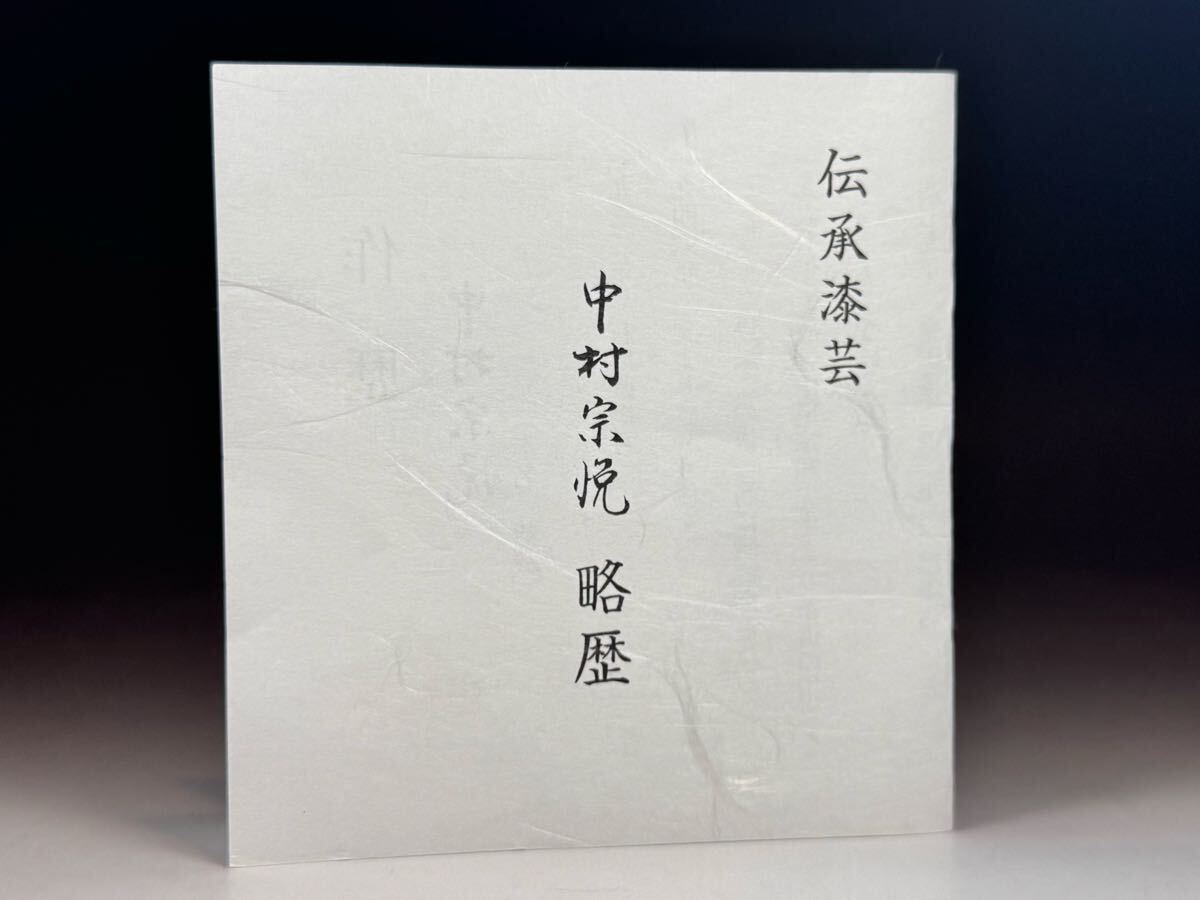 伝承漆芸
中村宗悦 略歴